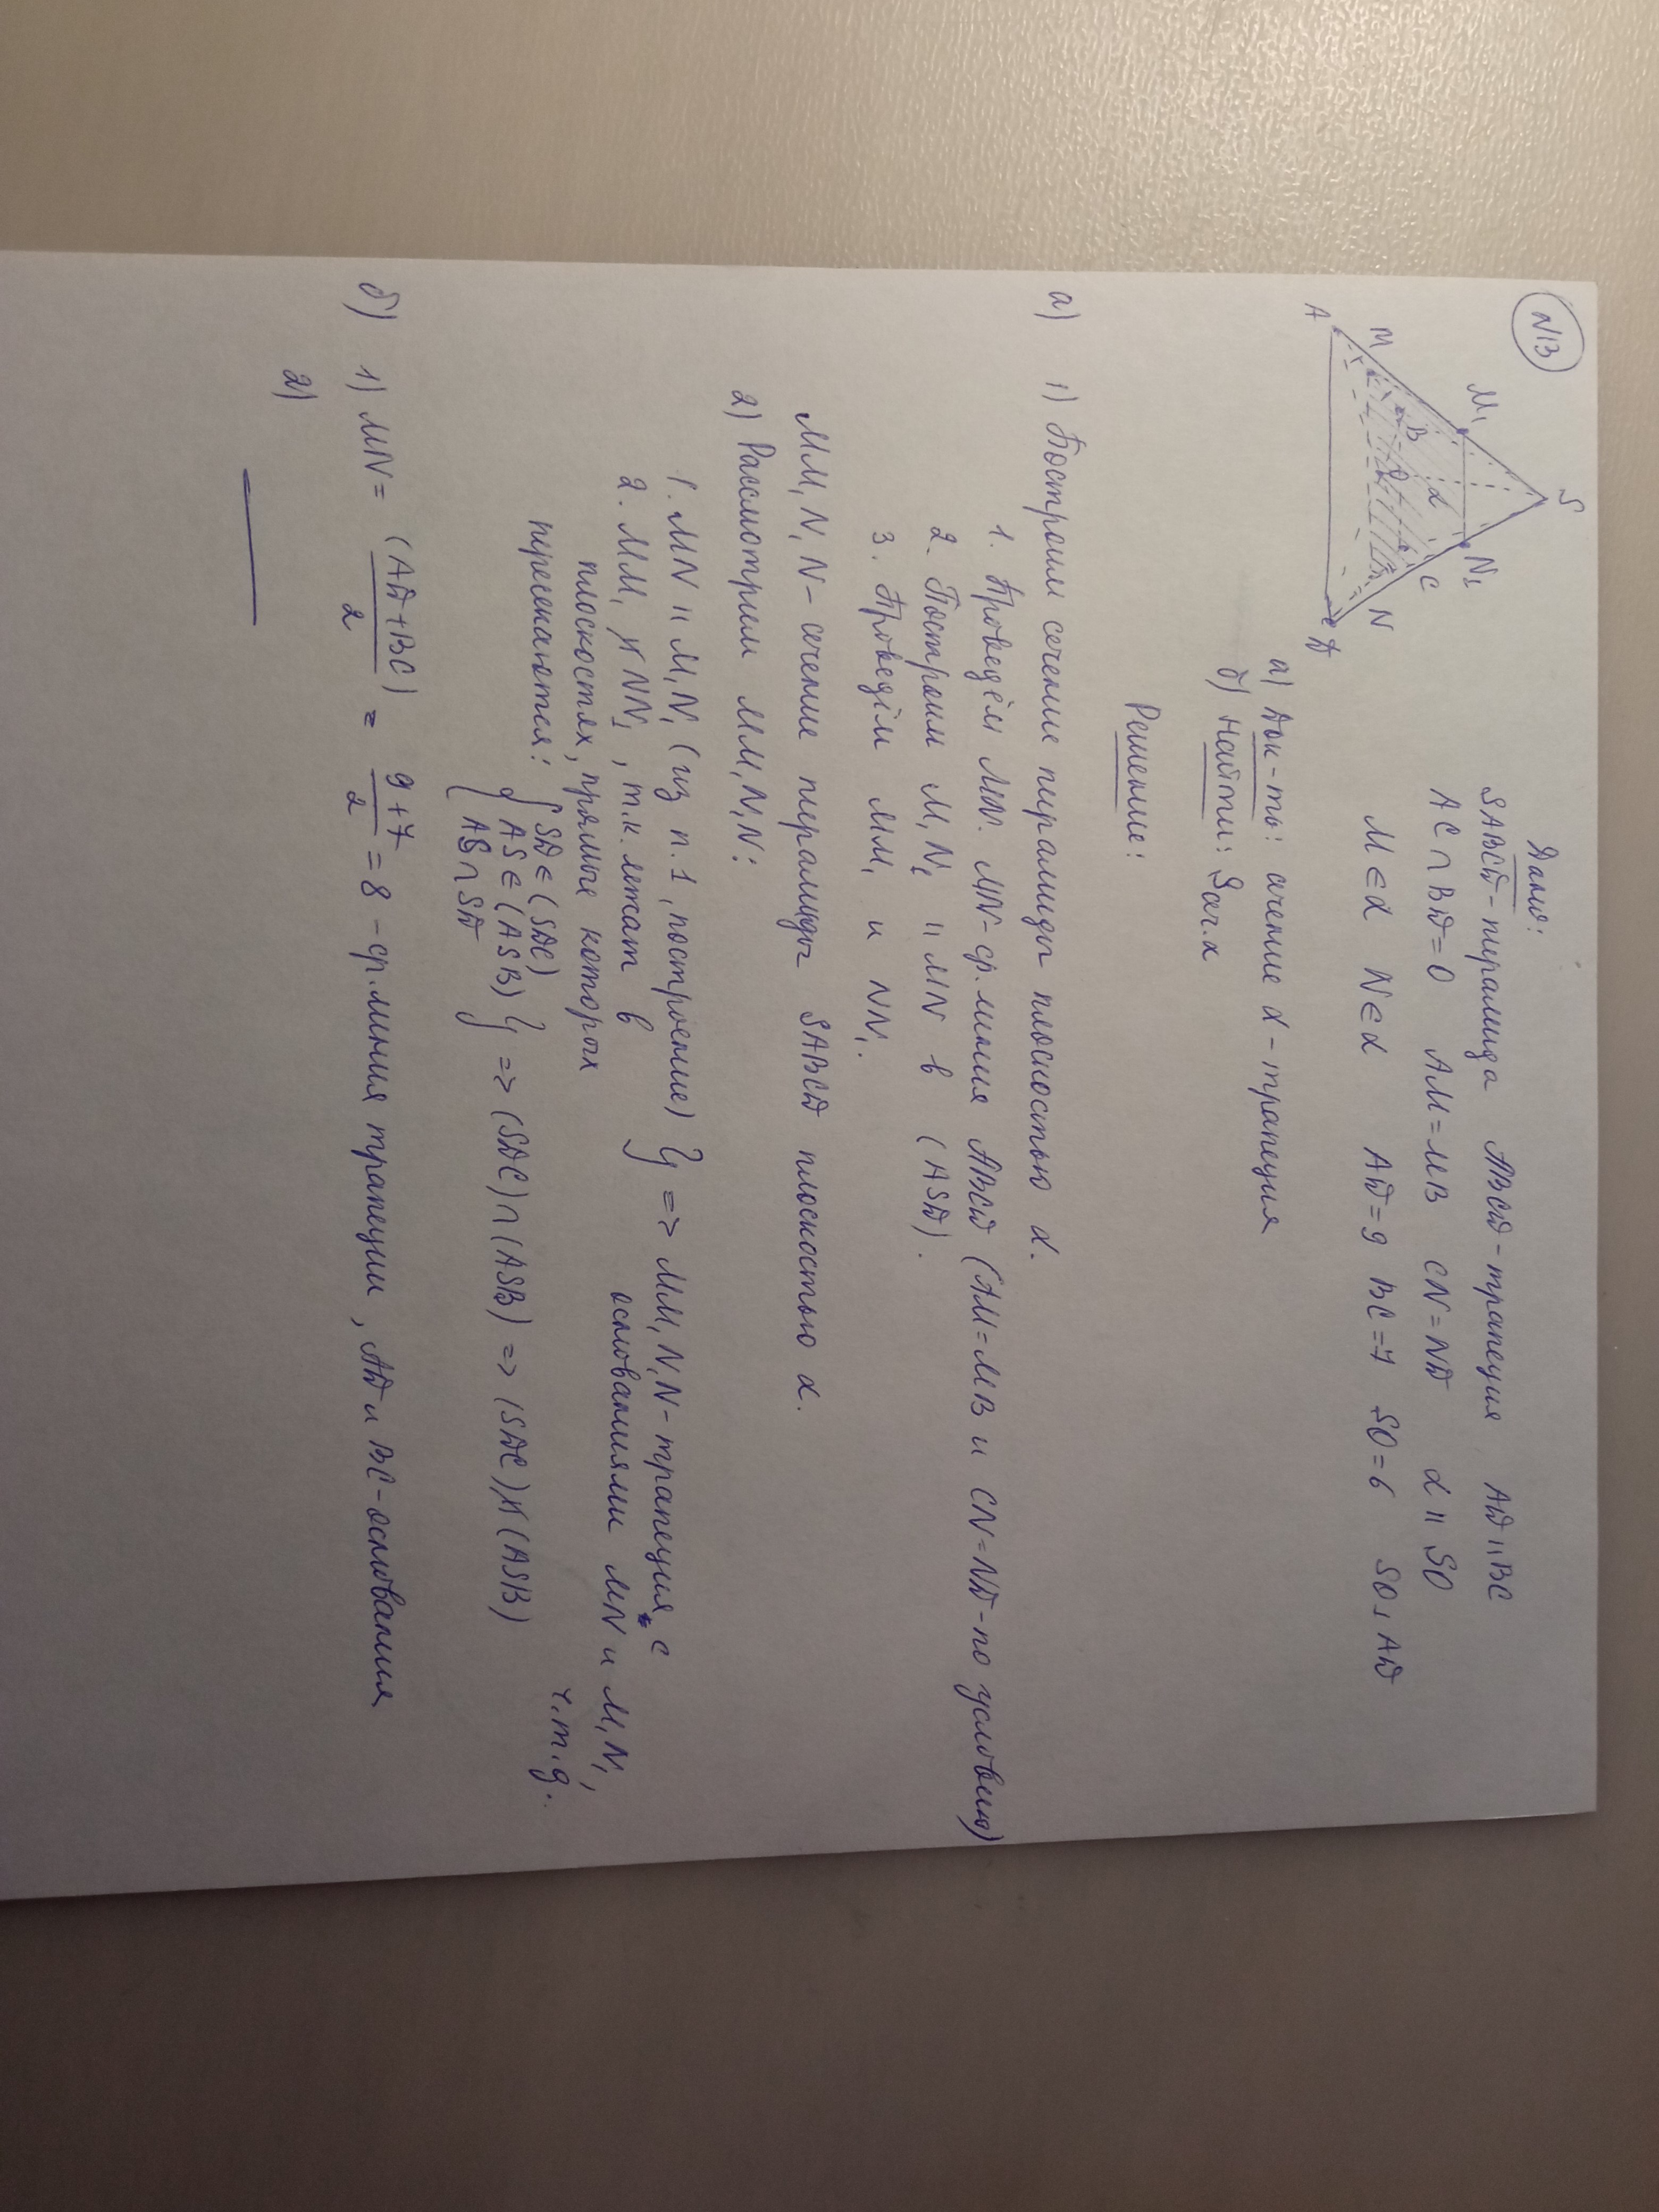 N13
S
M₁
N₁
α
B
C
O
M
N
A
D
Дано:
SABCD - пирамида ABCD - трапеция AD ॥ BC
AC ∩ BD = O AM = MB CN = ND α ॥ SO
M ∈ α N ∈ α AD = 9 BC = 7 SO = 6 SO ⊥ AD
а) Док-ть: сечение α - трапеция
б) Найти: Sсеч.α
Решение:
а) 1) Построим сечение пирамиды плоскостью α.
1. Проведём MN. MN - ср. линия ABCD (AM = MB и CN = ND - по условию)
2. Построим M₁N₁ ॥ MN в (ASD).
3. Проведём MM₁ и NN₁.
MM₁N₁N - сечение пирамиды SABCD плоскостью α.
2) Рассмотрим MM₁N₁N:
1. MN ॥ M₁N₁ (из п.1, построение) } => MM₁N₁N - трапеция с
2. MM₁ ∦ NN₁, т.к. лежат в
основаниями MN и M₁N₁,
плоскостях, прямые которых
ч.т.д.
пересекаются: { SD ∈ (SDC)
AS ∈ (ASB) } => (SDC) ∩ (ASB) => (SDC) ∦ (ASB)
AS ∩ SD
б) 1) MN = (AD + BC)/2 = 9 + 7/2 = 8 - ср. линия трапеции, AD и BC - основания
2)